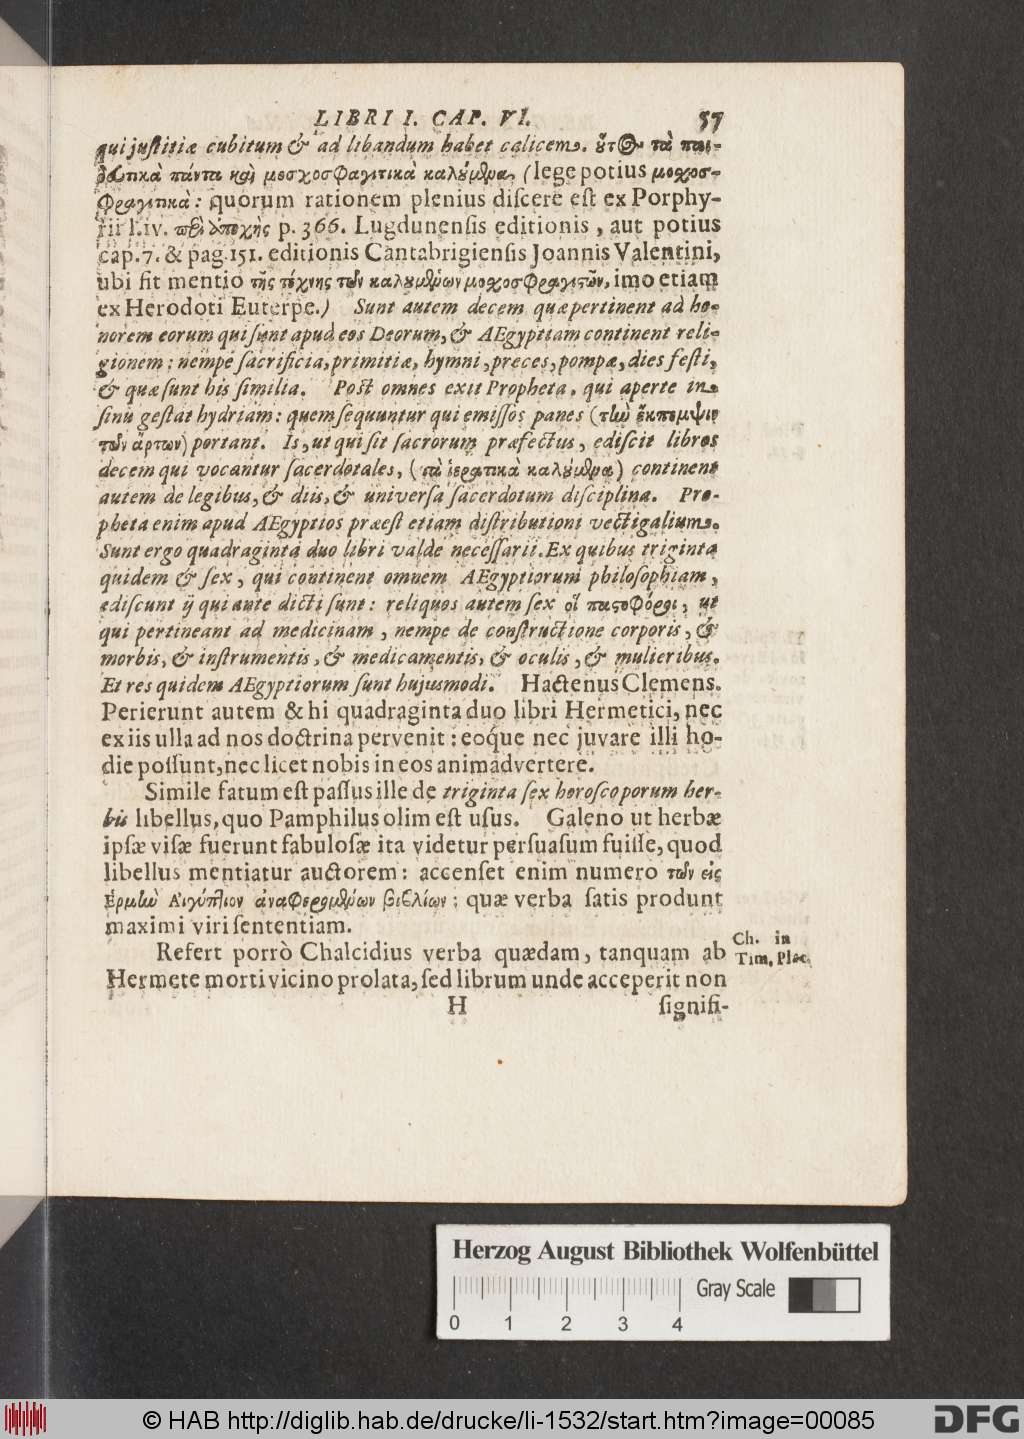 LIBRI I. CAP. VI. 57
qui justitiæ cubitum & ad libandum habet calicem. οὗτος τὰ παι-
δευτικὰ πάντα καὶ μοσχοσφαγιτικὰ καλούμενα, (lege potius μοσχοσ-
φραγιτικὰ: quorum rationem plenius discere est ex Porphy-
rii l. iv. περὶ ἀποχῆς p. 366. Lugdunensis editionis, aut potius
cap. 7. & pag. 151. editionis Cantabrigiensis Joannis Valentini,
ubi fit mentio τῆς τέχνης τῶν καλουμένων μοσχοσφραγιτῶν, imo etiam
ex Herodoti Euterpe.) Sunt autem decem quæ pertinent ad ho-
norem eorum qui sunt apud eos Deorum, & AEgyptiam continent reli-
gionem: nempe sacrificia, primitiæ, hymni, preces, pompæ, dies festi,
& quæ sunt his similia. Post omnes exit Propheta, qui aperte in
sinu gestat hydriam: quem sequuntur qui emissos panes (τὴν ἔκπεμψιν
τῶν ἄρτων) portant. Is, ut qui sit sacrorum præfectus, ediscit libros
decem qui vocantur sacerdotales, (τὰ ἱερατικὰ καλούμενα) continent
autem de legibus, & diis, & universa sacerdotum disciplina. Pro-
pheta enim apud AEgyptios præest etiam distributioni vectigalium.
Sunt ergo quadraginta duo libri valde necessarii. Ex quibus triginta
quidem & sex, qui continent omnem AEgyptiorum philosophiam,
ediscunt ij qui ante dicti sunt: reliquos autem sex οἱ παστοφόροι, ut
qui pertineant ad medicinam, nempe de constructione corporis, &
morbis, & instrumentis, & medicamentis, & oculis, & mulieribus.
Et res quidem AEgyptiorum sunt hujusmodi. Hactenus Clemens.
Perierunt autem & hi quadraginta duo libri Hermetici, nec
ex iis ulla ad nos doctrina pervenit: eoque nec juvare illi ho-
die possunt, nec licet nobis in eos animadvertere.
Simile fatum est passus ille de triginta sex horoscoporum her-
bis libellus, quo Pamphilus olim est usus. Galeno ut herbæ
ipsæ visæ fuerunt fabulosæ ita videtur persuasum fuisse, quod
libellus mentiatur auctorem: accenset enim numero τῶν εἰς
Ἑρμῆν Αἰγύπτιον ἀναφερομένων βιβλίων: quæ verba satis produnt
maximi viri sententiam.
Refert porrò Chalcidius verba quædam, tanquam ab
Ch. in
Tim. Plac.
Hermete morti vicino prolata, sed librum unde acceperit non
H signifi-
Herzog August Bibliothek Wolfenbüttel
Gray Scale
0 1 2 3 4
© HAB http://diglib.hab.de/drucke/li-1532/start.htm?image=00085
DFG